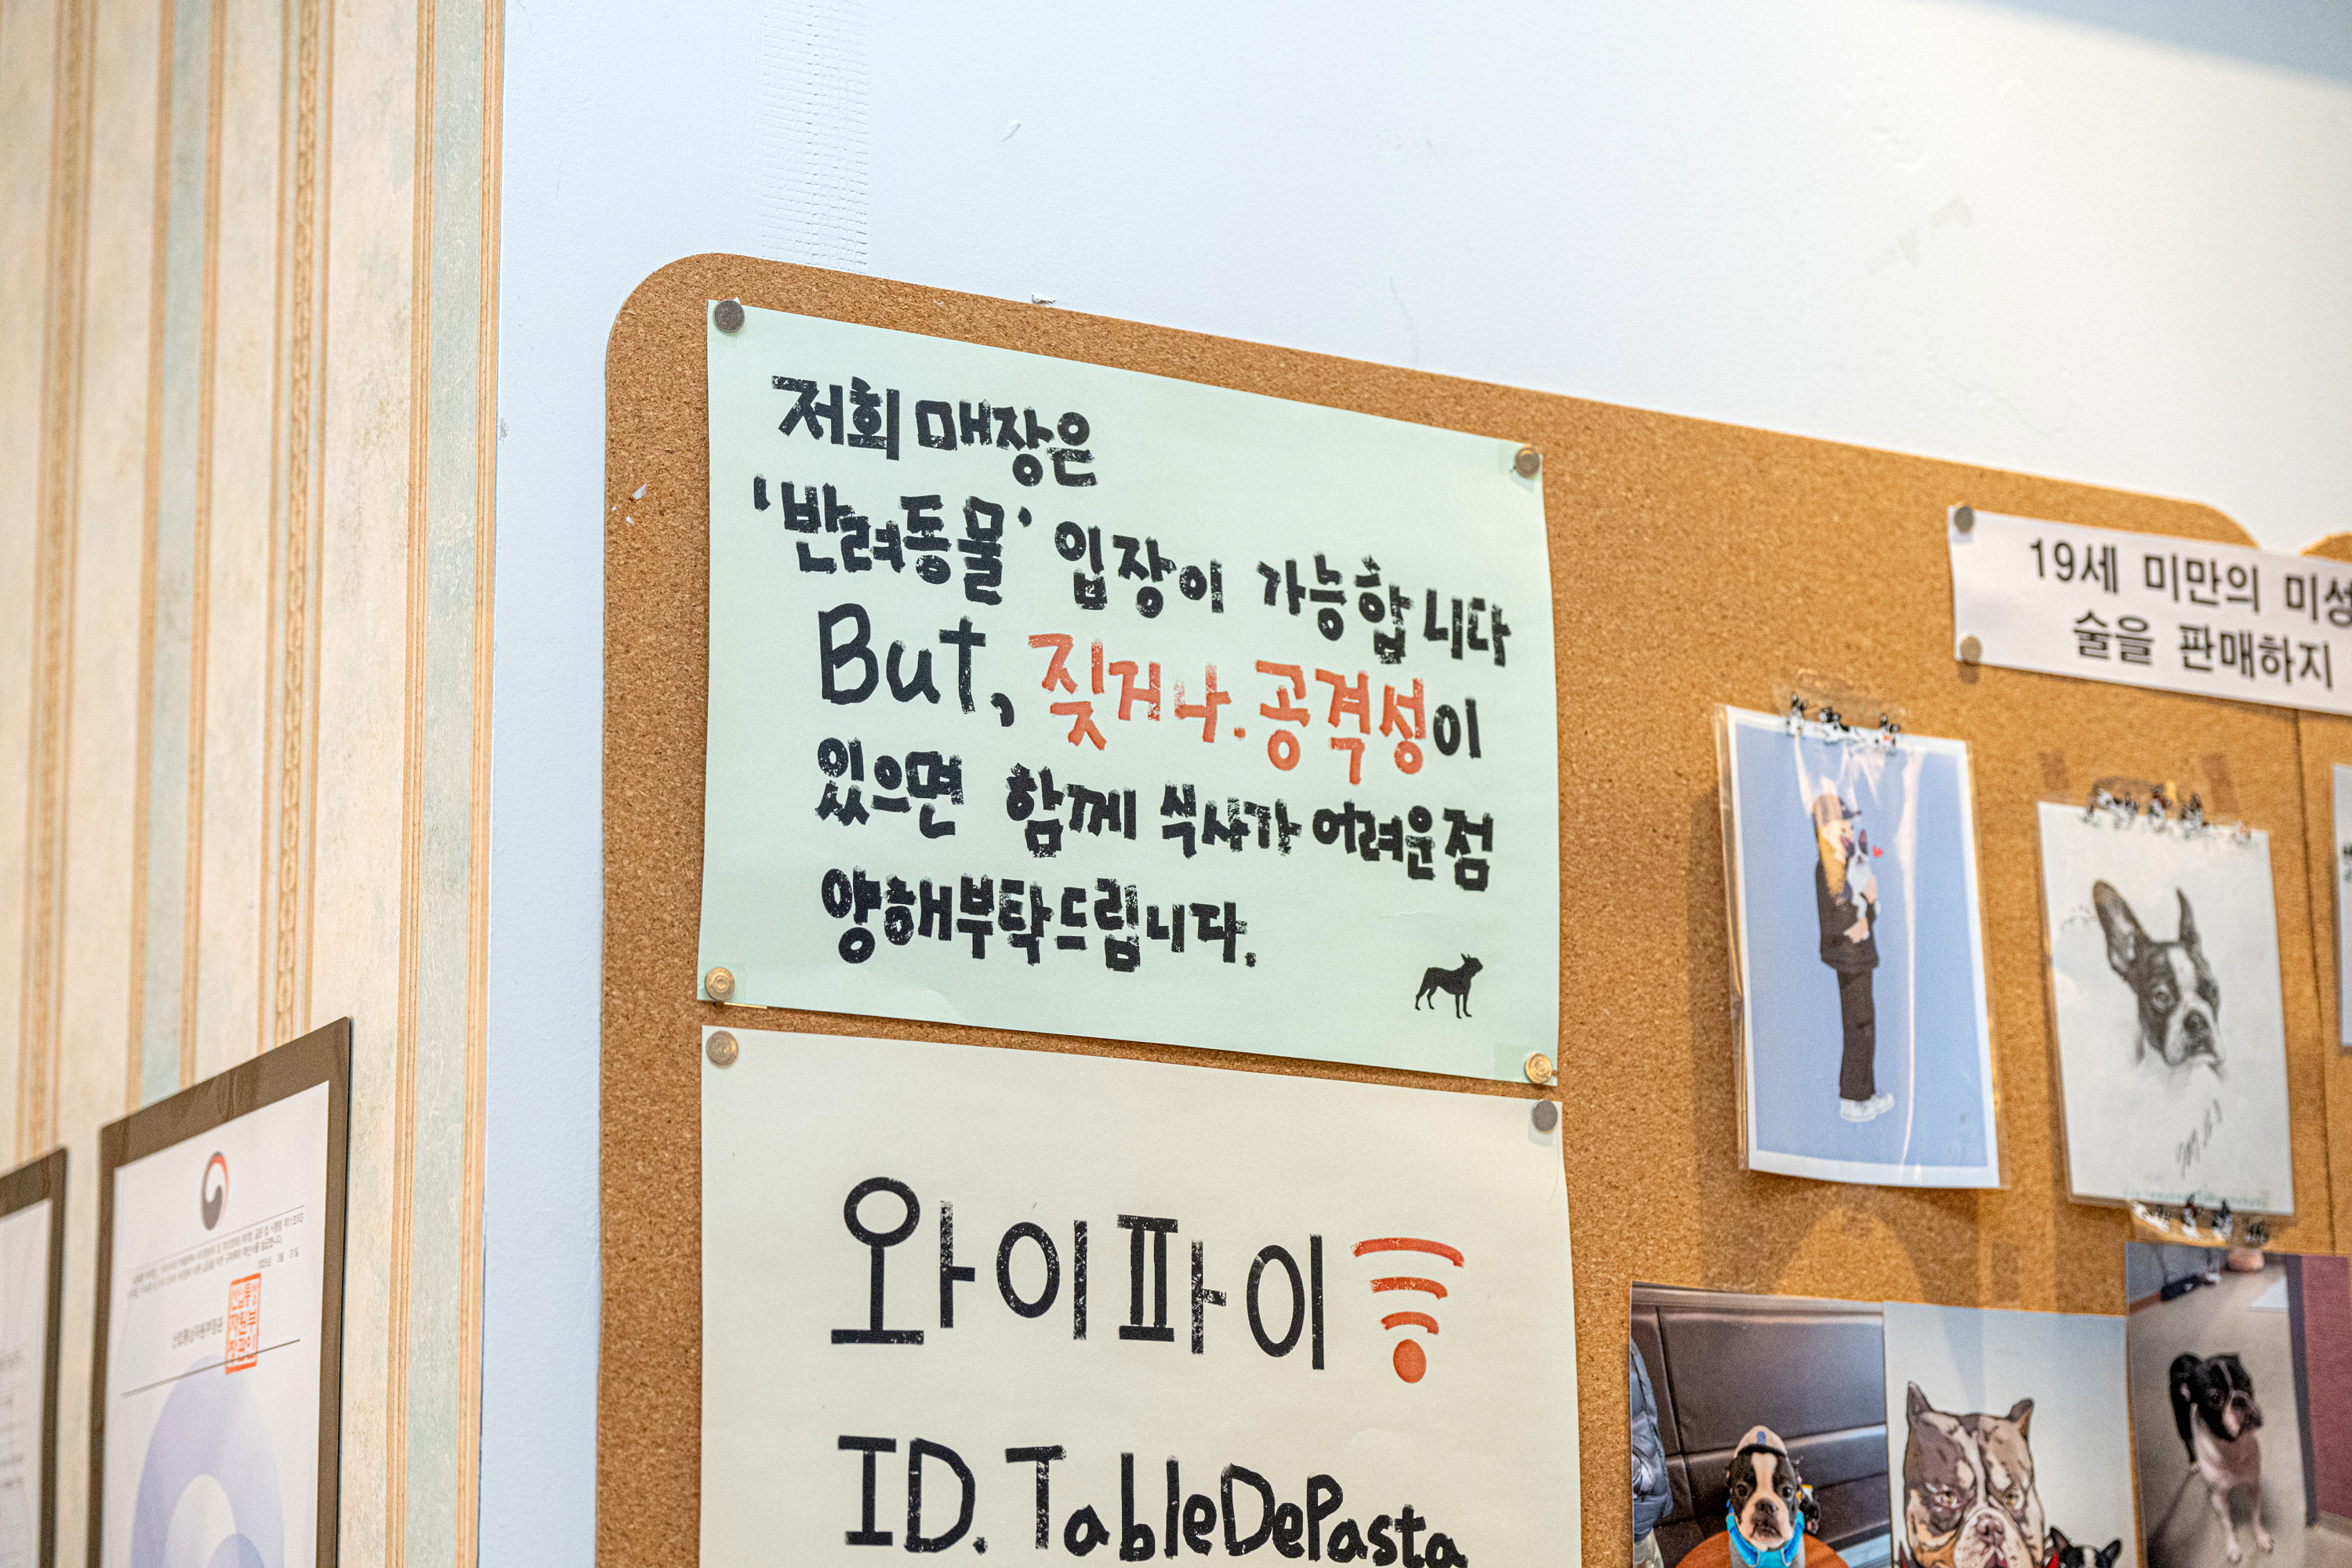 저희 매장은
'반려동물' 입장이 가능합니다
But, 짖거나. 공격성이
있으면 함께 식사가 어려운점
양해부탁드립니다.
와이파이
ID. TableDePasta
19세 미만의
술을 판매하지